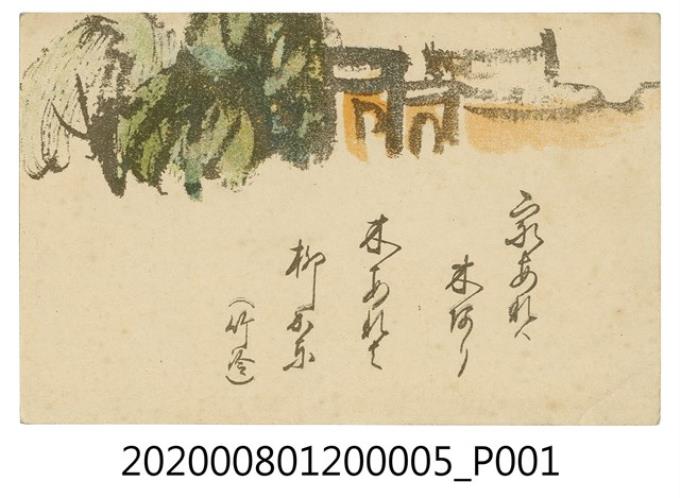 家あれハ
木あり
木あれは
柳かな
(竹冷)
202000801200005_P001